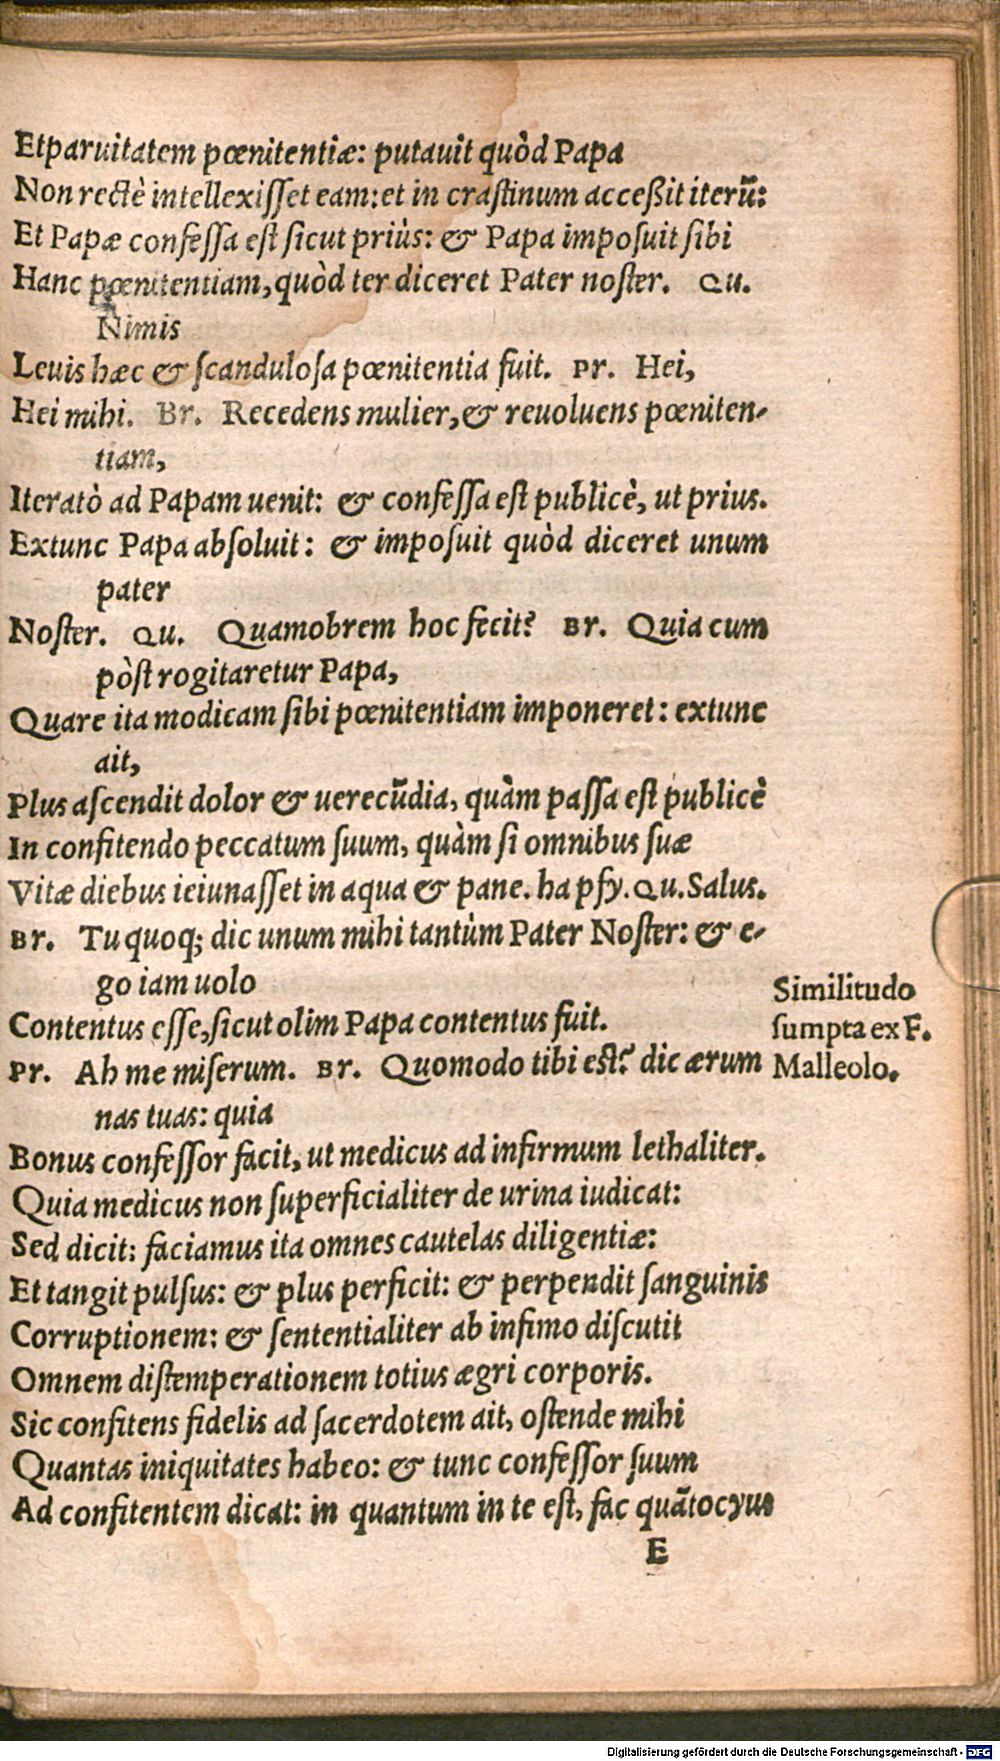 Et paruitatem pœnitentiæ: putauit quòd Papa
Non rectè intellexiſſet eam: et in craſtinum acceßit iterũ:
Et Papæ confeſſa eſt ſicut priùs: & Papa impoſuit ſibi
Hanc pœnitentiam, quòd ter diceret Pater noſter. Qu.
Nimis
Leuis hæc & ſcanduloſa pœnitentia fuit. Pr. Hei,
Hei mihi. Br. Recedens mulier, & reuoluens pœniten-
tiam,
Iteratò ad Papam uenit: & confeſſa eſt publicè, ut prius.
Extunc Papa abſoluit: & impoſuit quòd diceret unum
pater
Noſter. Qu. Quamobrem hoc fecit? Br. Quia cum
pòſt rogitaretur Papa,
Quare ita modicam ſibi pœnitentiam imponeret: extunc
ait,
Plus aſcendit dolor & uerecũdia, quàm paſſa eſt publicè
In confitendo peccatum ſuum, quàm ſi omnibus ſuæ
Vitæ diebus ieiunaſſet in aqua & pane. ha pfy. Qu. Salus.
Br. Tu quoq; dic unum mihi tantùm Pater Noſter: & e-
go iam uolo
Contentus eſſe, ſicut olim Papa contentus fuit.
Similitudo
ſumpta ex F.
Malleolo.
Pr. Ah me miſerum. Br. Quomodo tibi eſt? dic ærum
nas tuas: quia
Bonus confeſſor facit, ut medicus ad infirmum lethaliter.
Quia medicus non ſuperficialiter de urina iudicat:
Sed dicit: faciamus ita omnes cautelas diligentiæ:
Et tangit pulſus: & plus perficit: & perpendit ſanguinis
Corruptionem: & ſententialiter ab infimo diſcutit
Omnem diſtemperationem totius ægri corporis.
Sic confitens fidelis ad ſacerdotem ait, oſtende mihi
Quantas iniquitates habeo: & tunc confeſſor ſuum
Ad confitentem dicat: in quantum in te eſt, fac quãtocyus
E
Digitalisierung gefördert durch die Deutsche Forschungsgemeinschaft - DFG